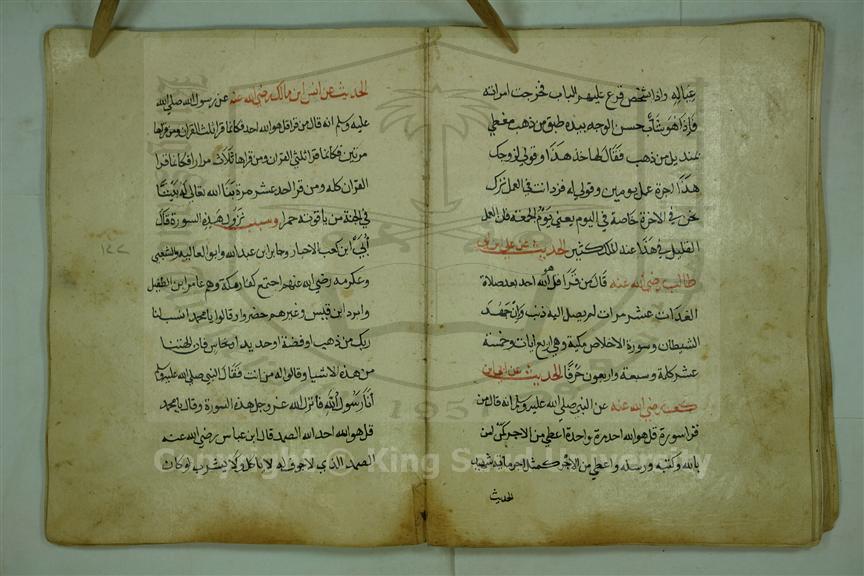 عياله واذا بشخص قرع عليهم الباب فخرجت امراته
فاذا هو شاب حسن الوجه بيده طبق من ذهب مغطى
بمنديل من ذهب فقال لها خذ هذا وقولي لزوجك
هذا اجرة عمل يومين وقولي له فزدات في العمل نزدك
نحن في الاخرة خاصة في اليوم يعني يوم الجمعة فلن العمل
القليل في هذا عند الملك كثير الحديث عن علي ابن ابي
طالب رضي الله عنه قال من قرا قل هو الله احد بعد صلاة
الغدات عشر مرات لم يصل اليه ذنب وان جهد
الشيطان وسورة الاخلاص مكية وهي اربع ايات وخمسة
عشر كلمة وسبعة واربعون حرفا الحديث عن ابي ابن
كعب رضي الله عنه عن النبي صلى الله عليه وسلم انه قال من
قرا سورة قل هو الله احد مرة واحدة اعطي من الاجر كمن امن
بالله وكتبه ورسله واعطي من الاجر كمثل اجر ماية شهيد
الحديث
الحديث عن انس ابن مالك رضي الله عنه عن رسول الله صلى الله
عليه وسلم انه قال من قرا قل هو الله احد فكانما قرا ثلث القران ومن قراها
مرتين فكانما قرا ثلثي القران ومن قراها ثلاث مرار فكانما قرا
القران كله ومن قرا احد عشر مرة بنا الله تعالى له بيتا
في الجنة من ياقوتة حمرا وسبب نزول هذه السورة قال
أبي ابن كعب الاحبار وجابر ابن عبد الله وابو العاليه والشعبي
وعكرمه رضي الله عنهم اجتمع كفار مكة وهم عامر ابن الطفيل
واربد ابن قيس وغيرهم حضروا وقالوا يا محمد انسب لنا
ربك من ذهب او فضة او حديد او نحاس فان الهتنا
من هذه الاشيا وقالوا له من انت فقال النبي صلى الله عليه وسلم
أنا رسول الله فانزل الله عز وجل هذه السورة وقال يا محمد
قل هو الله احد الله الصمد قال ابن عباس رضي الله عنه
الصمد الذي لا جوف له لا ياكل ولا يشرب وكان
١٤٧
Copyright © King Saud University
1957